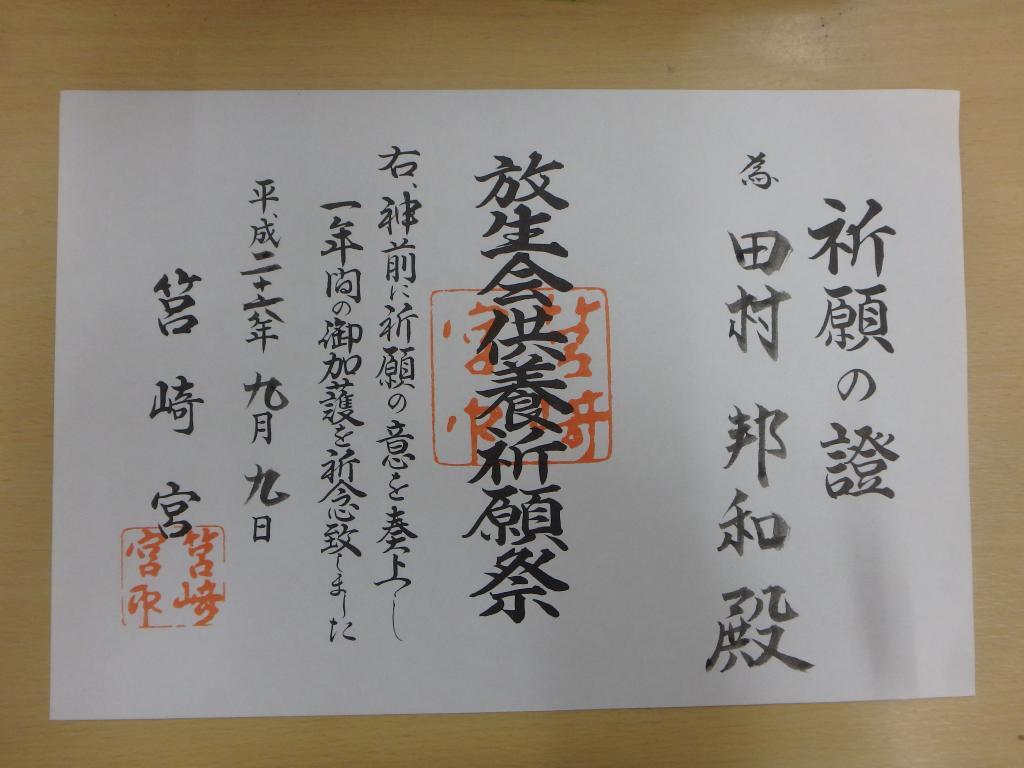 祈願の證
為 田村 邦和 殿
放生会供養祈願祭
右、神前に祈願の意を奏上し
一年間の御加護を祈念致しました
平成二十六年 九月 九日
筥崎宮
筥崎
宮印